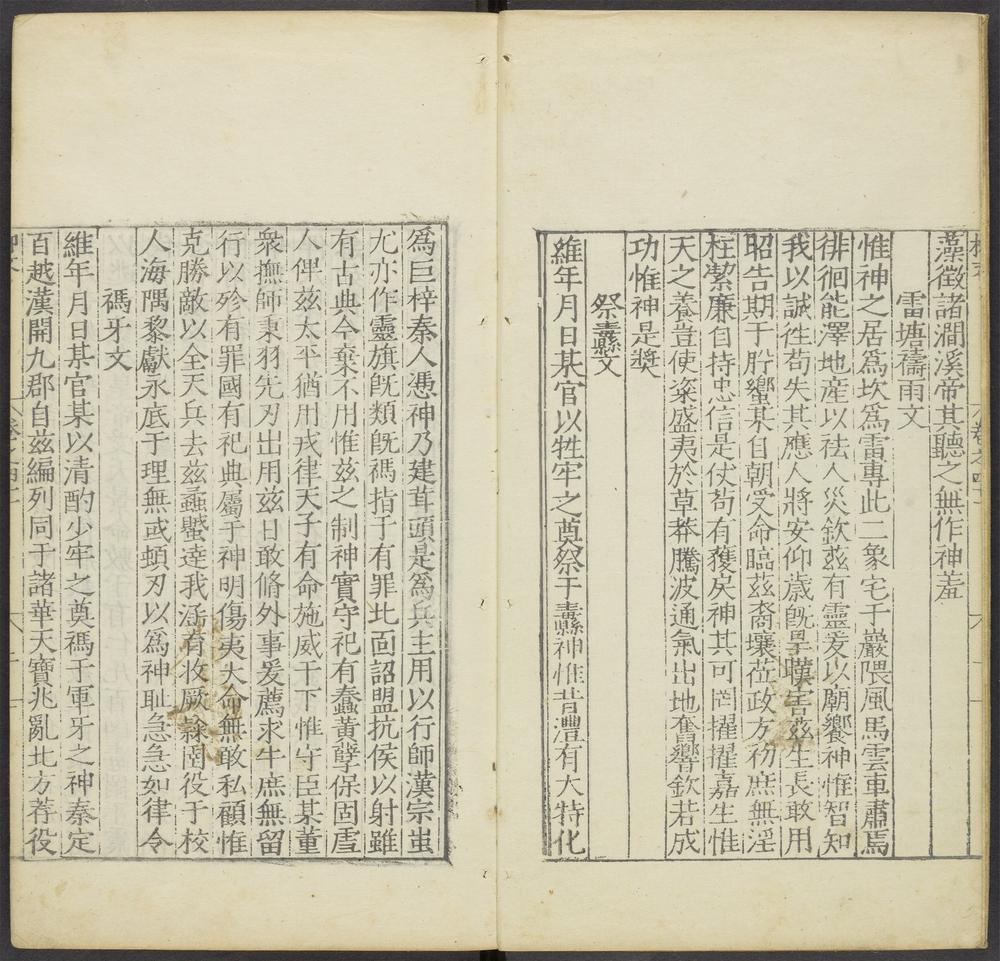 藻徵諸澗溪帝其聽之無作神羞
雷塘禱雨文
惟神之居爲坎爲雷專此二象宅于巖隈風馬雲車肅焉
徘徊能澤地產以祛人災欽兹有靈爰以廟饗神惟智知
我以誠徃苟失其應人將安仰歲旣旱暵害兹生長敢用
昭告期于肸蠁某自朝受命臨兹裔壤莅政方初庶無淫
枉潔廉自持忠信是仗苟有獲戾神其可罔擢擢嘉生惟
天之養豈使粢盛夷於草莽騰波通氣出地奮響欽若成
功惟神是奬
祭纛文
維年月日某官以牲牢之奠祭于纛神惟昔灃有大特化
爲巨梓秦人憑神乃建茸頭是爲兵主用以行師漢宗蚩
尤亦作靈旗旣類旣禡指于有罪北面詔盟抗侯以射雖
有古典今棄不用惟兹之制神實守祀有蠢黄孽保固虐
人俾兹太平猶用戎律天子有命施威于下惟守臣某董
衆撫師秉羽先刃出用兹日敢脩外事爰薦求牛庶無留
行以殄有罪國有祀典屬于神明傷夷大命無敢私顧惟
克勝敵以全天兵去兹蟊蠈達我涵育收厥隸圉役于校
人海隅黎獻永底于理無或頓刃以爲神耻急急如律令
禡牙文
維年月日某官某以清酌少牢之奠禡于軍牙之神秦定
百越漢開九郡自兹編列同于諸華天寶兆亂北方荐役